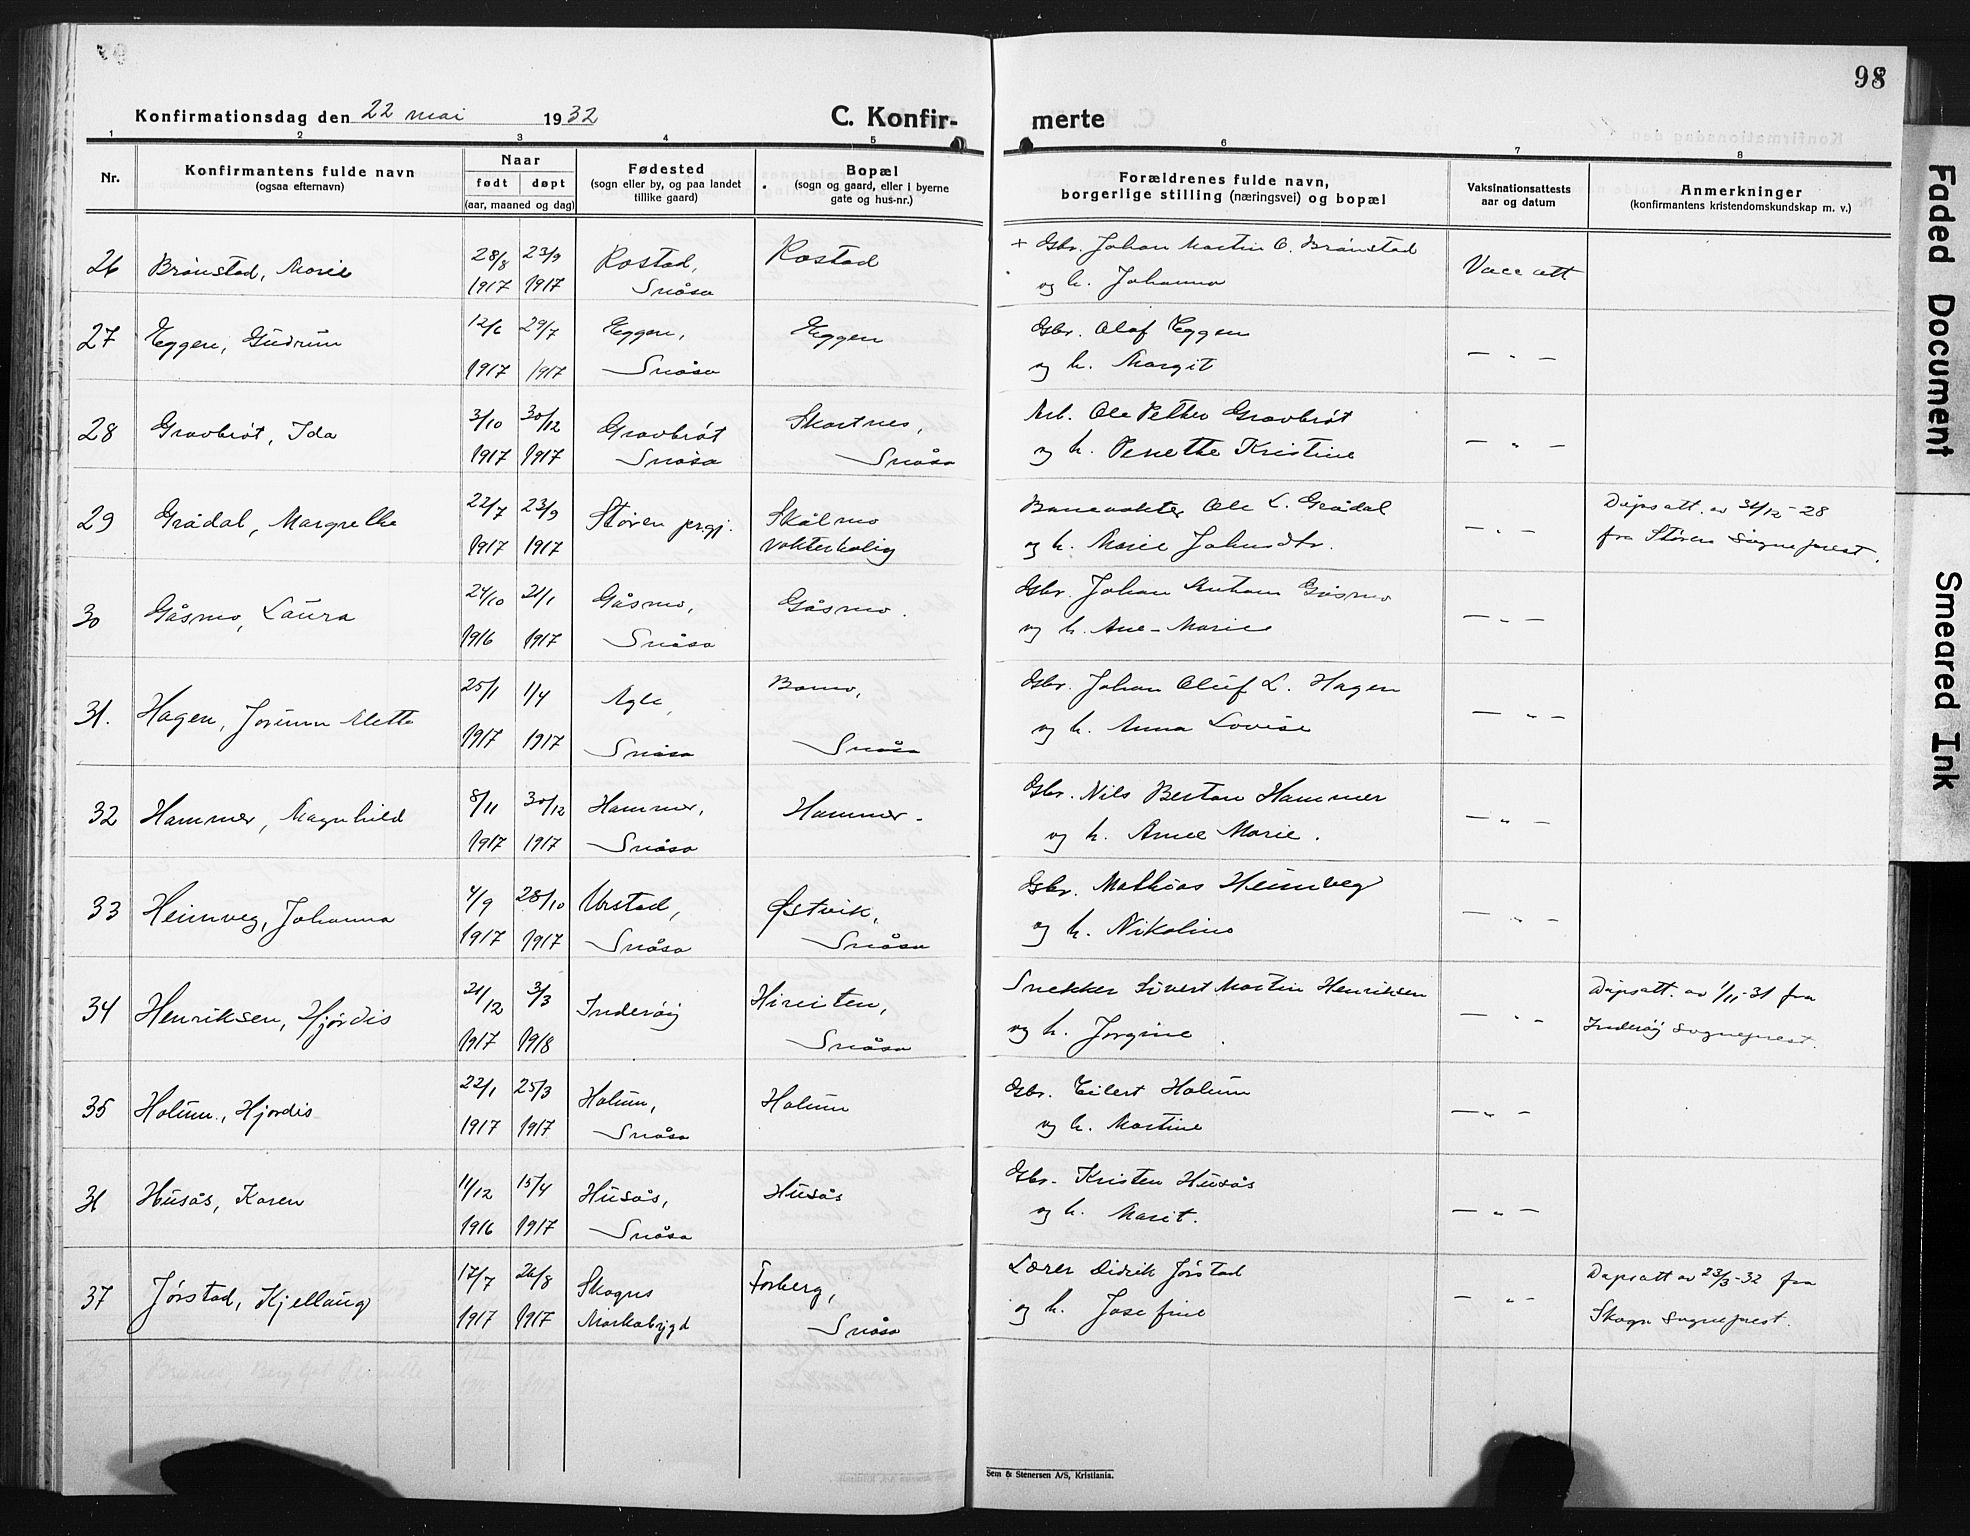 98
Konfirmationsdag den 22 mai 1932
C. Konfirmerte
1 2 3 4 5 6 7 8
Nr.
Konfirmantens fulde navn
(ogsaa efternavn)
Naar
født døpt
(aar, maaned og dag)
Fødested
(sogn eller by, og paa landet
tillike gaard)
Bopæl
(sogn og gaard, eller i byerne
gate og hus-nr.)
Forældrenes fulde navn,
borgerlige stilling (næringsvei) og bopæl
Vaksinationsattests
aar og datum
Anmerkninger
(konfirmantens kristendomskundskap m. v.)
26 Brønstad, Marie 28/8 23/9 Rostad, Rostad + Gbr. Johan Martin O. Brønstad Vacc att
1917 1917 Snåsa og h. Johanna
27 Eggen, Gudrun 12/6 29/7 Eggen, Eggen Gbr. Olaf Eggen — " —
1917 1917 Snåsa og h. Margit
28 Gravbrøt, Ida 3/10 30/12 Gravbrøt Skartnes, Arb. Ole Petter Gravbrøt — " —
1917 1917 Snåsa Snåsa og h. Penethe Kristine
29 Grådal, Margrethe 22/7 23/9 Støren prgj. Skålmo Banevokter Ole L. Grådal — " — Dåpsatt. av 31/12-28
1917 1917 vokterbolig og h. Marie Johnsdtr. fra Støren sogneprest.
30 Gåsmo, Laura 24/10 21/1 Gåsmo, Gåsmo. Gbr. Johan Anton Gåsmo — " —
1916 1917 Snåsa og h. Ane-Marie
31. Hagen, Jorunn Mette 25/1 1/4 Agle, Bomo, Gbr. Johan Oluf L. Hagen — " —
1917 1917 Snåsa Snåsa og h. Anna Lovise
32 Hammer, Magnhild 8/11 30/12 Hammer, Hammer. Gbr. Nils Bertan Hammer — " —
1917 1917 Snåsa og h. Anne Marie.
33 Heimveg, Johanna 4/9 28/10 Vestad, Østvik, Gbr. Mathias Heimveg — " —
1917 1917 Snåsa Snåsa og h. Nikoline
34 Henriksen, Hjørdis 21/12 3/3 Inderøy Snekker Sivert Martin Henriksen — " — Dåpsatt. av 1/11-31 fra
1917 1918 Snåsa og h. Jorgine. Inderøy sogneprest.
35 Holum, Hjordis 22/1 25/3 Holum, Holum Gbr. Eilert Holum — " —
1917 1917 Snåsa og h. Martine
36 Husås, Karen 11/12 15/4 Husås, Husås Gbr. Kristen Husås — " —
1916 1917 Snåsa og h. Marit.
37 Jørstad, Kjellaug 17/7 26/8 Skogns Forberg, Lærer Didrik Jørstad — " — Dåpsatt av 23/3-32 fra
1917 1917 Markabygd Snåsa og h. Josefine Skogn sogneprest.
Sem & Stenersen A/S, Kristiania.
Faded Document
Smeared Ink